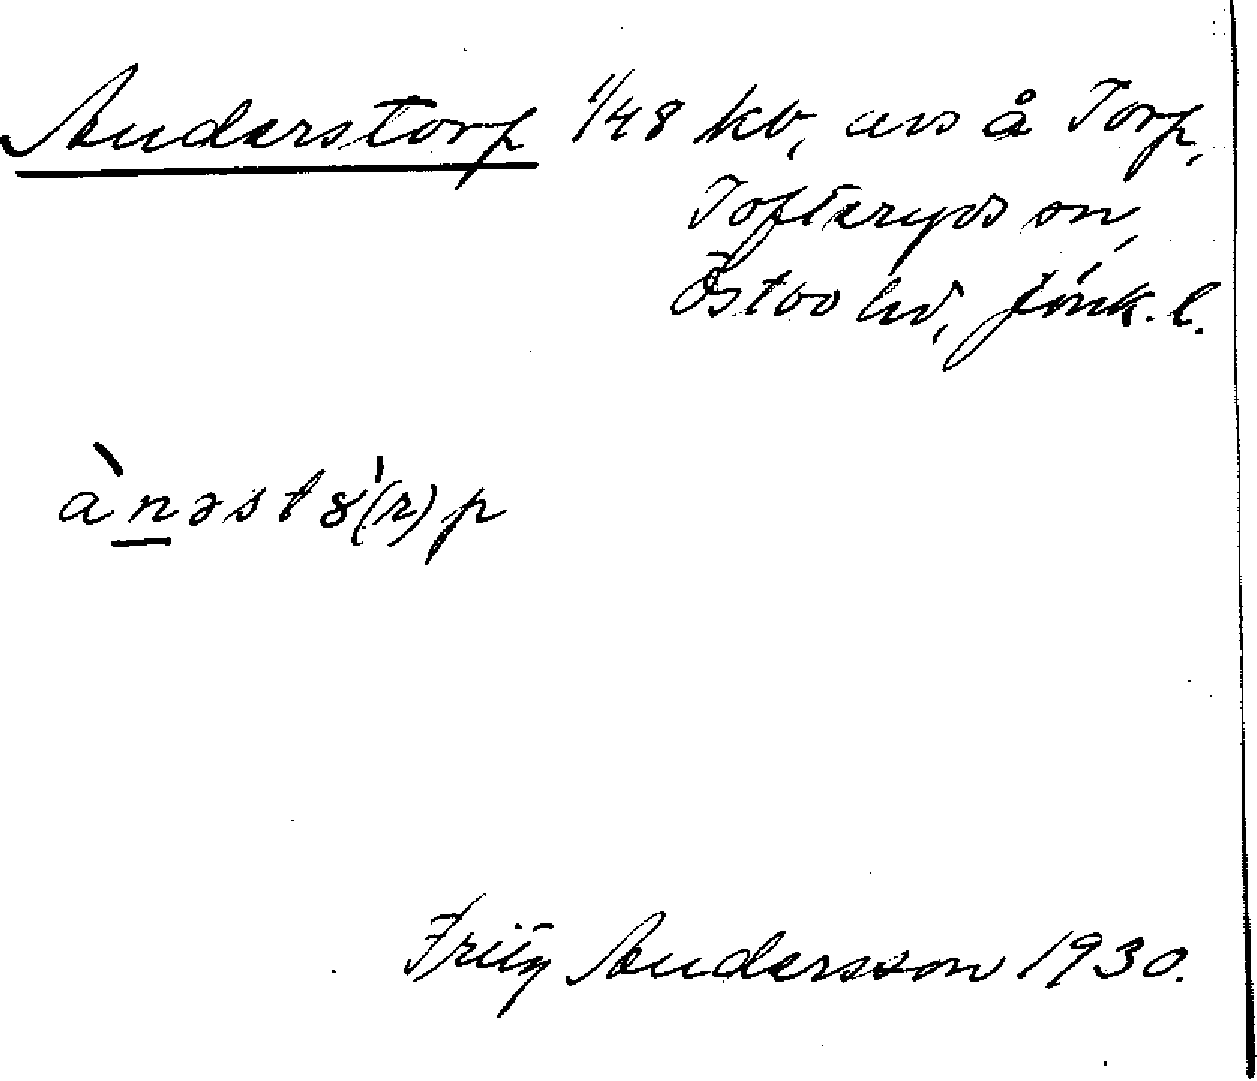 Anderstorp 1/48 kv, avs å Torp,
Tofteryds sn,
Östbo hd, Jönk. l.
ànəst8(r)p
Fritz Andersson 1930.